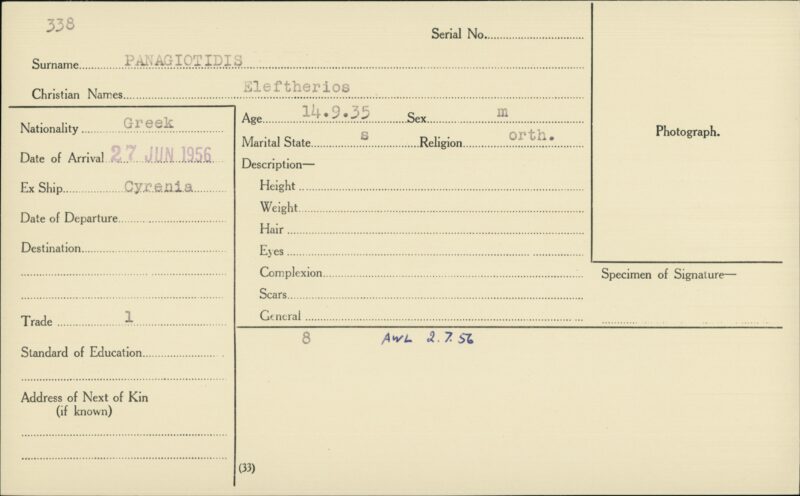 338
Serial No.
Surname PANAGIOTIDIS
Christian Names Eleftherios
Nationality Greek
Date of Arrival 27 JUN 1956
Ex Ship Cyrenia
Date of Departure
Destination
Trade 1
Standard of Education
Address of Next of Kin
(if known)
Age 14.9.35 Sex m
Marital State s Religion orth.
Description—
Height
Weight
Hair
Eyes
Complexion
Scars
General
Photograph.
Specimen of Signature—
8 AWL 2.7.56
(33)